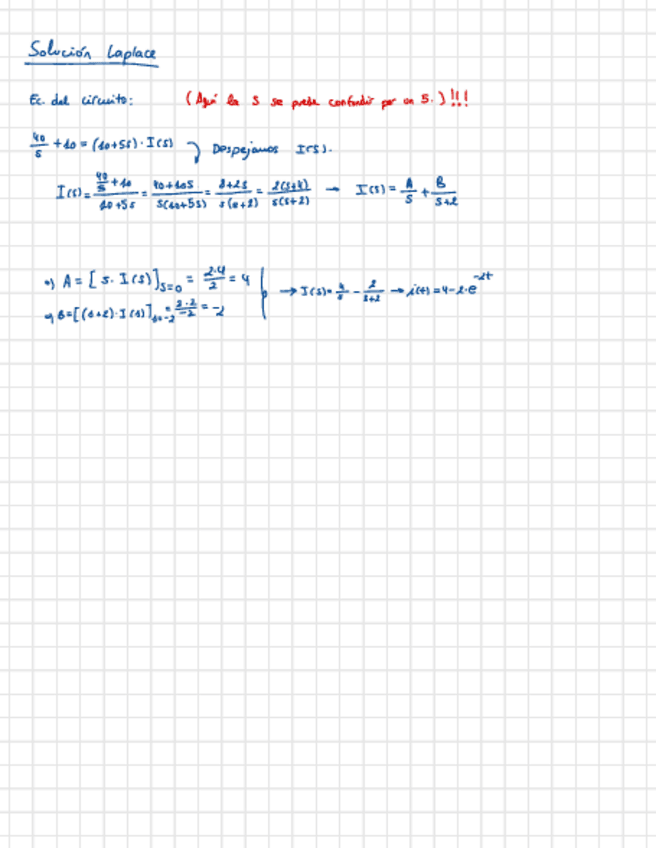 Solución Laplace
Ec. del circuito: (Aquí la s se puede confundir por un 5.) !!!
40/s + 10 = (10+5s) · I(s) } Despejamos I(s).
I(s) = (40/s + 10)/(10+5s) = (40+10s)/(s(10+5s)) = (8+2s)/(s(s+2)) = 2(s+4)/(s(s+2)) → I(s) = A/s + B/(s+2)
•) A = [s · I(s)]s=0 = 2·4/2 = 4
•) B = [(s+2) · I(s)]s=-2 = 2·2/-2 = -2 → I(s) = 4/s - 2/(s+2) → i(t) = 4-2·e^-2t